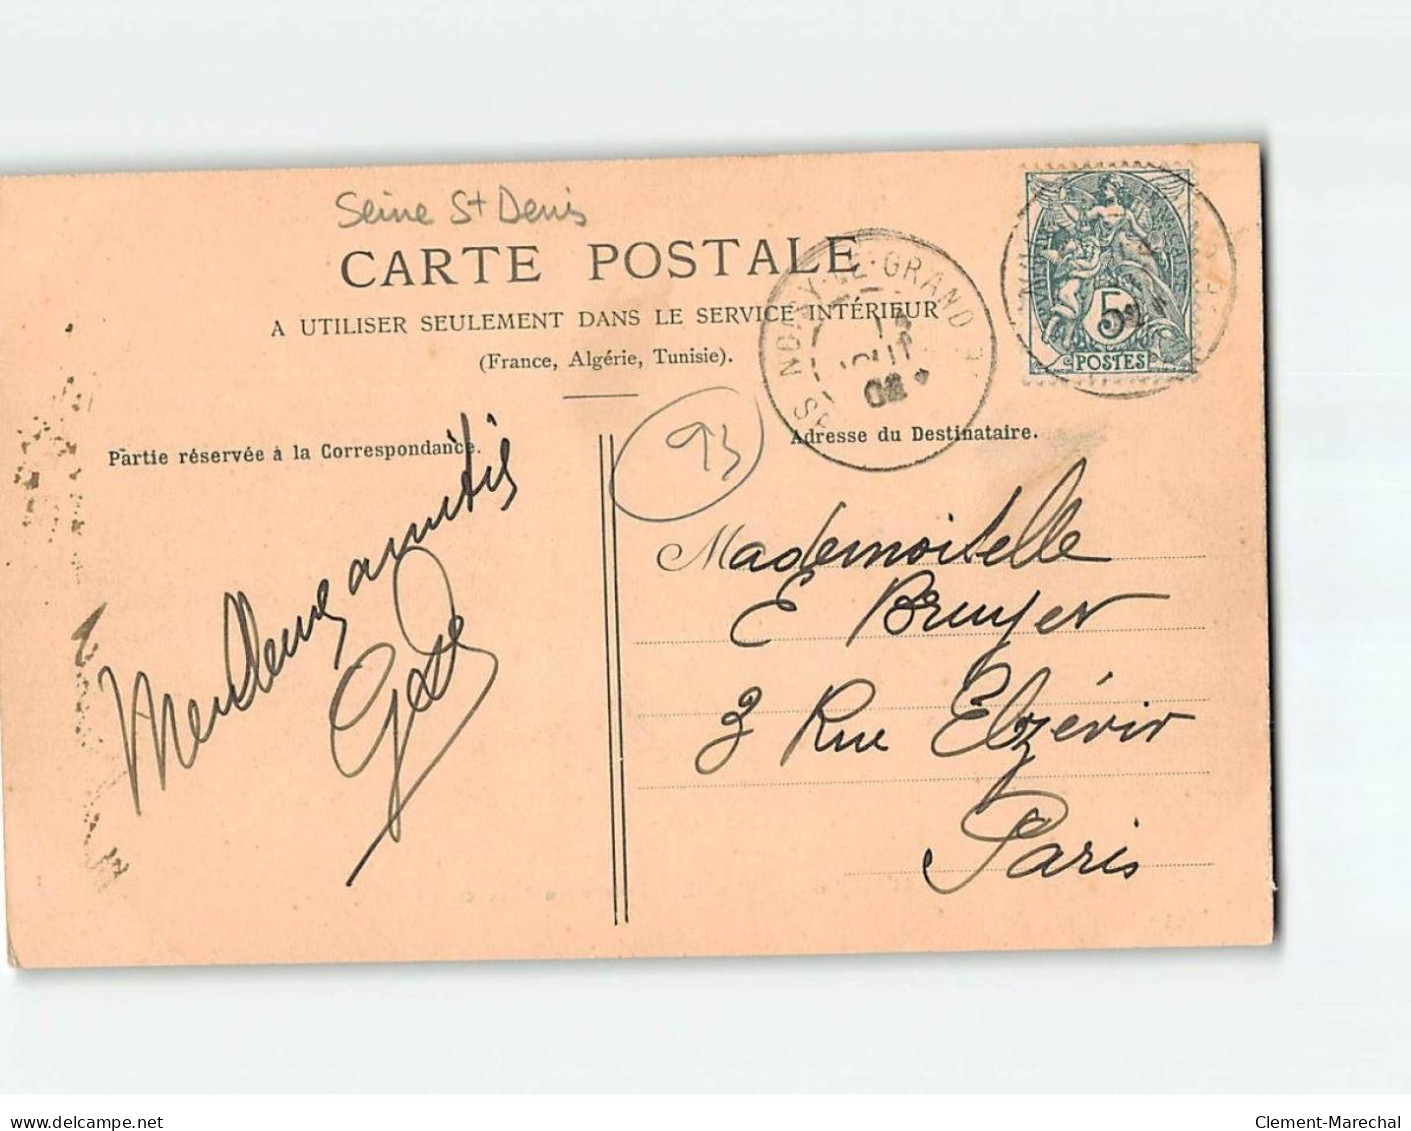 Seine St Denis
CARTE POSTALE
A UTILISER SEULEMENT DANS LE SERVICE INTÉRIEUR
(France, Algérie, Tunisie).
NOISY-LE-GRAND
5
POSTES
93
Partie réservée à la Correspondance.
Adresse du Destinataire.
Meilleures amitiés
Mademoiselle
E Bruyer
3 Rue Elzévir
Paris
www.delcampe.net
Clement-Marechal